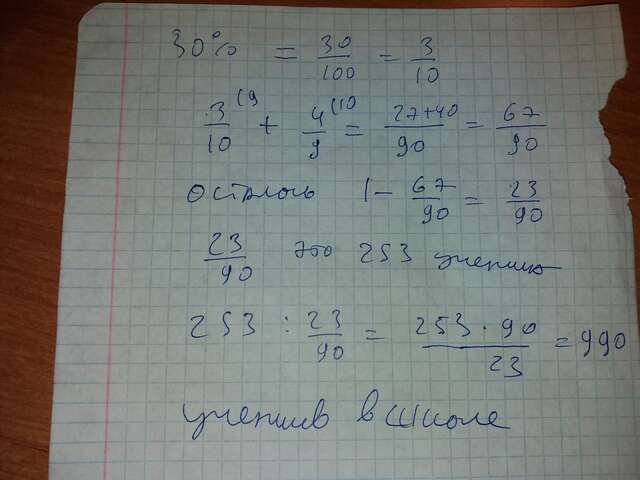 30% = 30/100 = 3/10
3/10 (9 + 4/9 (10 = 27+40/90 = 67/90
Осталось 1 - 67/90 = 23/90
23/90 это 253 ученика
253 : 23/90 = 253·90/23 = 990
учеников в школе